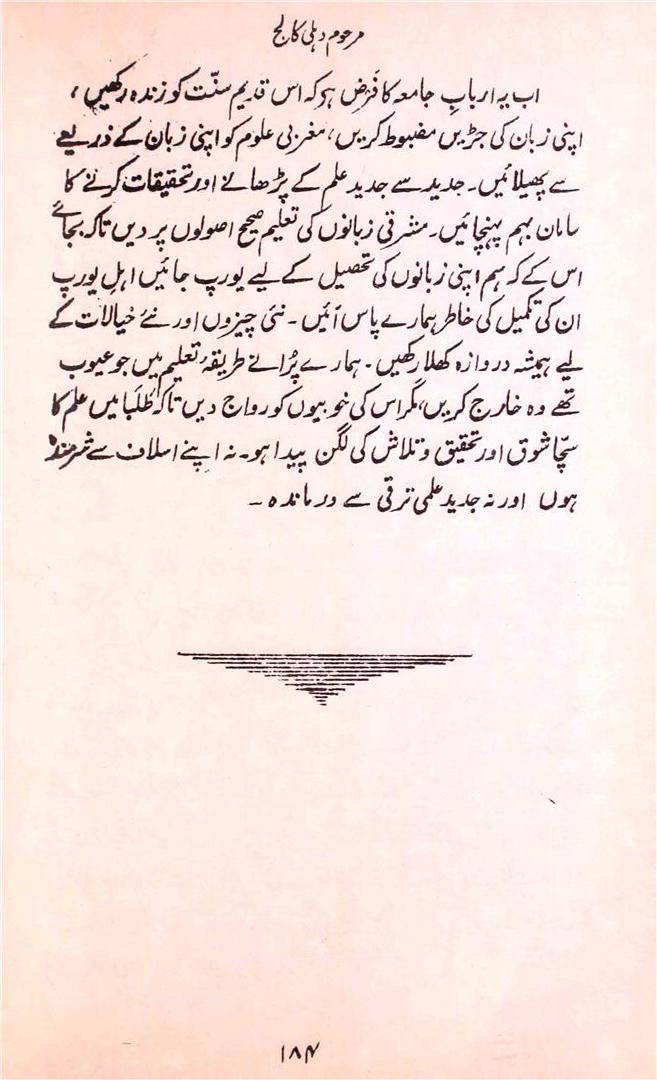 مرحوم دہلی کالج
اب یہ اربابِ جامعہ کا فرض ہو کہ اس قدیم سنّت کو زندہ رکھیں،
اپنی زبان کی جڑیں مضبوط کریں، مغربی علوم کو اپنی زبان کے ذریعے
سے پھیلائیں۔ جدید سے جدید علم کے پڑھانے اور تحقیقات کرنے کا
سامان بہم پہنچائیں۔ مشرقی زبانوں کی تعلیم صحیح اصولوں پر دیں تاکہ بجائے
اس کے کہ ہم اپنی زبانوں کی تحصیل کے لیے یورپ جائیں اہلِ یورپ
ان کی تکمیل کی خاطر ہمارے پاس آئیں۔ نئی چیزوں اور نئے خیالات کے
لیے ہمیشہ دروازہ کھلا رکھیں۔ ہمارے پُرانے طریقۂ تعلیم میں جو عیوب
تھے وہ خارج کریں، مگر اس کی خوبیوں کو رواج دیں تاکہ طُلَبا میں علم کا
سچّا شوق اور تحقیق و تلاش کی لگن پیدا ہو۔ نہ اپنے اسلاف سے شرمندہ
ہوں اور نہ جدید علمی ترقی سے درماندہ۔
۱۸۴